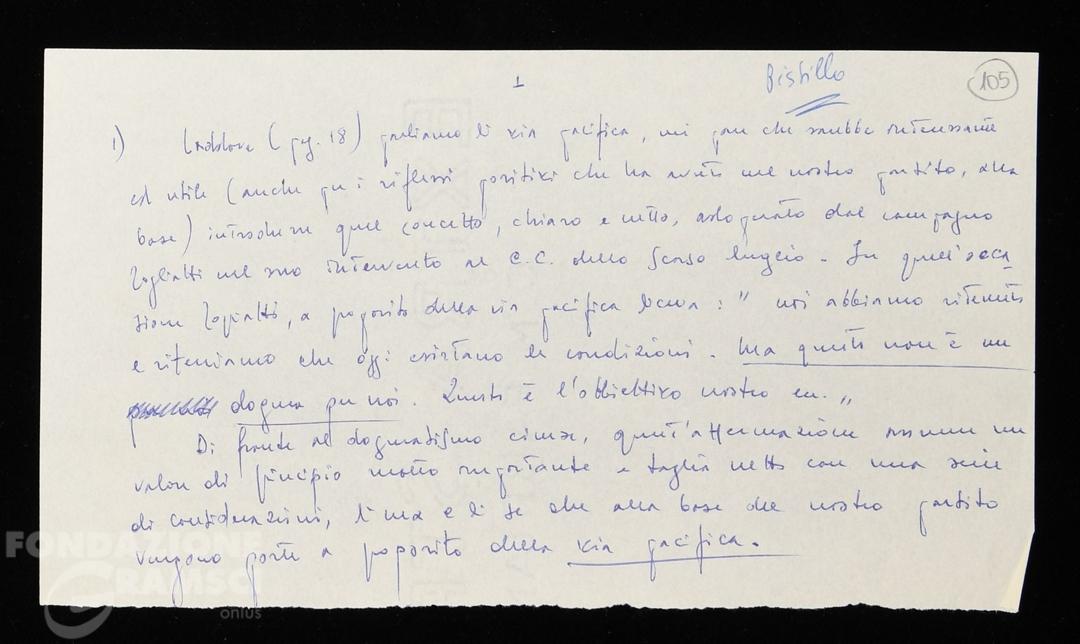 1
Bistillo
105
1) Laddove (pag. 18) parliamo di via pacifica, mi pare che sarebbe interessante
ed utile (anche per i riflessi positivi che ha avuto nel nostro partito, alla
base) introdurre quel concetto, chiaro e netto, adoperato dal compagno
Togliatti nel suo intervento al C.C. dello scorso luglio. In quell'occa
sione Togliatti, a proposito della via pacifica diceva: " noi abbiamo ritenuto
e riteniamo che oggi esistano le condizioni. Ma questo non è un
dogma per noi. Questo è l'obbiettivo nostro ecc. "
Di fronte al dogmatismo cinese, quest'affermazione assume un
valore di principio molto importante e taglia netto con una serie
di considerazioni, i ma e i se che alla base del nostro partito
vengono poste a proposito della via pacifica.
FONDAZIONE
GRAMSCI
onlus